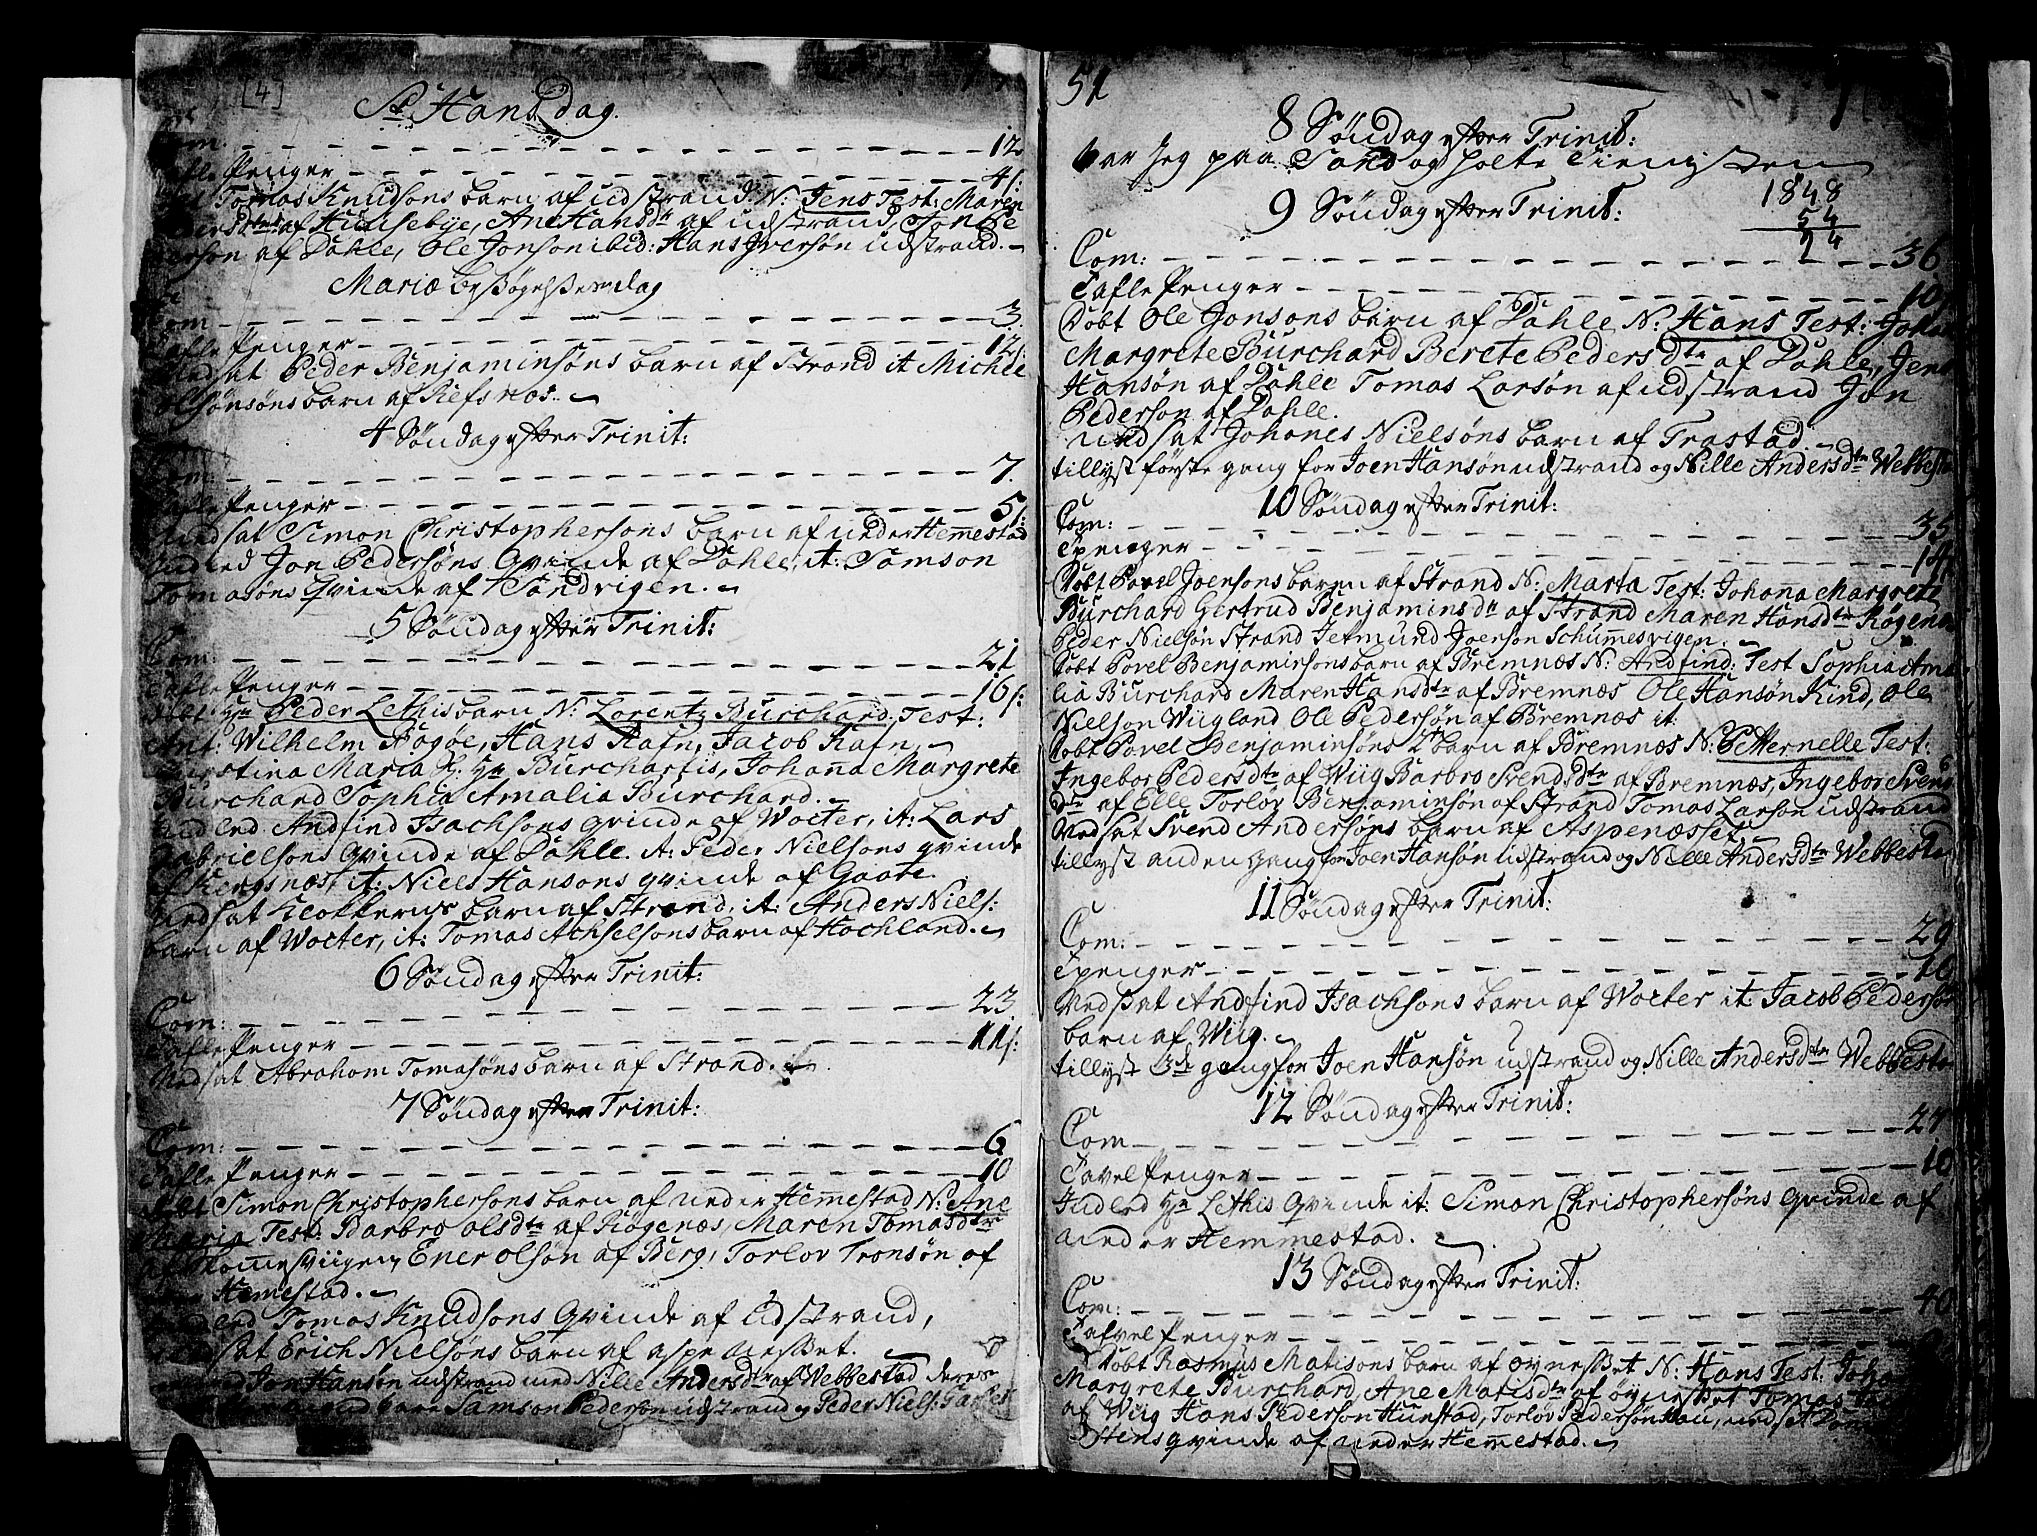 [4]
St Hans dag.
Com: 12
Tafle Penger 4 s:
Tomas Knudsons barn af udstrand: N: Jens Test: Maren
af Husebye, Ane Hansdtr af udstrand, Jon Pe
derson af Dahle, Ole Jonson ibid: Hans Iversøn udstrand.
Mariæ besøgelses dag
Com 3.
Tafle Penger 12 s:
Indsat Peder Benjaminsøns barn af Strand it Michle
olsønsøns barn af Refsnos.
4 Søndag efter Trinit:
Com: 7.
Tafle Penger 5 s:
Indsat Simon Christophersons barn af under Hemestad
Indled Jon Pedersøns Qvinde af Dahle, it: Samson
Tomasøns qvinde af Sandvigen.
5 Søndag efter Trinit:
Com: 21
Tafle Penger 16 s:
Hr Peder Lethis barn N: Lorentz Burchard. Test:
Ant: Wilhelm Høgøe, Hans Rafn, Jacob Rafn,
Christina Maria Hr Burchartis, Johanna Margrete
Burchard Sophia Amalia Burchard.
Indled Andfind Isachsons qvinde af Wocter, it: Lars
Gabrielsons qvinde af Dahle. it: Peder Nielsons qvinde
af Kengsnæs it: Niels Hansons qvinde af Gaate.
Indsat Klokkerns barn af Strand, it: Anders Niels:
barn af Wocter, it: Tomas Achselsons barn af Hochland.
6 Søndag efter Trinit:
Com: 23.
Tafle Penger 11 s:
Indsat Abraham Tomasøns barn af Strand.
7 Søndag efter Trinit:
Com: 6
Tafle Penger 10
Simon Christophersons barn af under Hemestad N: Ane
Maria Test: Barbro olsdtr af Røgenæs, Maren Tomasdtr
Ener olsøn af Berg, Torlov Tronsøn af
Hemestad.
Tomas Knudsons Qvinde af Udstrand,
Indsat Erich Nielsøns barn af aspenesset.
Jon Hansøn udstrand med Nille Andersdtr af Webbestad deres
Samson Pederson udstrand og Peder Niels:
51
8 Søndag efter Trinit:
var jeg paa Sand og holte Tienisten
9 Søndag efter Trinit:
1848
54
24
Com: 36
Tafle Penger 10
Døbt Ole Jonsons barn af Dahle N: Hans Test: Joha
Margrete Burchard Berete Pedersdtr af Dahle, Jens
Hansøn af Dahle Tomas Larsøn af udstrand Jon
Pederson af Dahle.
indsat Johanes Nielsøns barn af Trastad.
tillyst første gang for Joen Hansøn udstrand og Nille Andersdtr Webbesta
10 Søndag efter Trinit:
Com: 35
Tpenger 14
Døbt Povel Joensons baren af Strand N: Marta Test: Johana Margrete
Burchard Gertrud Benjaminsdtr af Strand Maren Hansdtr Røgenæs
Peder Nielsøn Strand Jetmund Joerson Schumesvigen.
Døbt Povel Benjaminsons barn af Bremnæs N: Andfind: Test Sophia Ama
lia Burchard Maren Hansdtr af Bremnæs Ole Hansøn Kind, Ole
Nielson Wiigland Ole Pedersøn af Bremnæs it:
Døbt Povel Benjaminsøns 2t barn af Bremnæs N: Petternelle Test:
Ingebor Pedersdtr af Wiig Barbro Svendsdtr af Bremnæs, Ingebor Svends
dtr af Elle Torløv Benjaminsøn af Strand Tomas Larson udstrand
Indsat Svend Andersøns barn af Aspenæsset
tillyst anden gang for Joen Hansøn udstrand og Nille Andersdtr Webbesta
11 Søndag efter Trinit:
Com: 29
Tpenger 16
Indsat Andfind Isachsons barn af Wocter it: Jacob Pedersøn
barn af Wiig.
tillyst 3de gang for Joen Hansøn udstrand og Nille Andersdtr Webbesta
12 Søndag efter Trinit:
Com 27
Tavel Penger 10
Indled Hr Lethis Qvinde it: Simon Christophersøns qvinde af
under Hemmestad.
13 Søndag efter Trinit:
Com: 40
Tafvel Penger
Døbt Rasmus Matisons barn af øynesset N: Hans Test: Joha
Margrete Burchard, Ane Matisdtr af øynesset Tomas
af Wiig Hans Pederson Hunstad, Torløv Pedersøn Hau, indsat
Stens qvinde af under Hemestad.